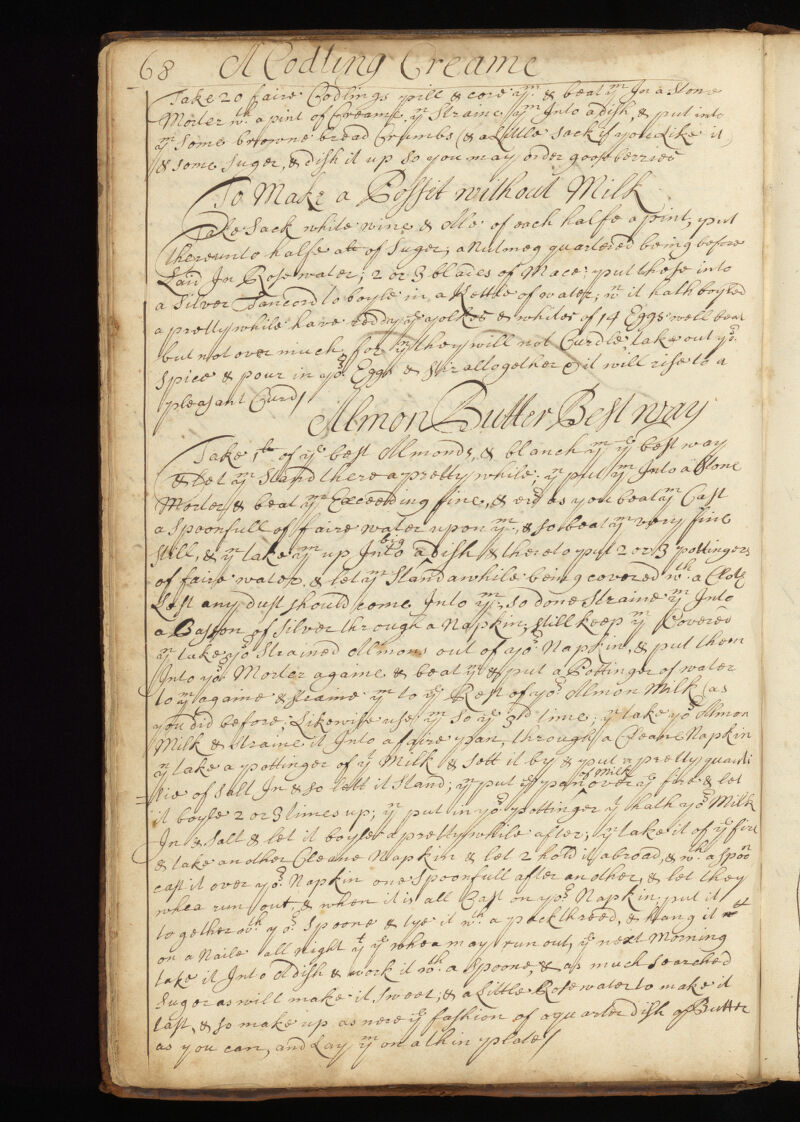 68 A Codling Creame
Take 20 faire Codlings pill & core ym & beat ym In a Stone
Morter wth. a pint of Creame, yn Straine ym Into a dish, & put into
ym Some browne bread Crumbs (& a Little Sack if you Like it)
& some Suger, & dish it up So you may order gooseberries
To Make a Possit without Milk
Take Sack white wine & Alle of each halfe a pint, put
thereunto halfe a ll of Suger, a Nutmeg quartered being before
Laid In Rose water; 2 or 3 blades of Mace; put these into
a Silver Tancord to boyle in a Kettle of water; wn it hath boyled
a pretty while have reddy ye yolkes & whites of 14 Eggs well beat
but not over much, for yn they will not Curdle, take out yor.
Spice & pour in yor Eggs & Stir altogether & it will rise to a
pleasant Curd/
Almon Butter Best way
Take 1ll of ye best Almonds, & blanch ym ye best way
& Let ym Stand there a pretty while; yn put ym Into a Stone
Morter & beat ym Exceeding fine, & ever as you beat ym Cast
a Spoonfull of faire water upon ym, & so beat ym very fine
Still, & yn take ym up Into a big dish & thereto put 2 or 3 pottingers
of faire water, & let ym Stand awhile being covered wth. a Cloth
Lest any dust should come Into ym, So done Straine ym Into
a Basson of Silver through a Napkin, still keep ym Covered
yn take yor Strained Almons out of yor Napkin, & put them
Into yor Morter againe & beat ym & put a Pottinger of water
to ym againe & straine ym to ye Rest of yor Almon Milk (as
you did before; Likewise use ym So ye 3d time; yn take yor Almon
Milk & Straine it Into a faire pan, through a Cleane Napkin
yn take a pottinger of ye Milk & Sett it by & put a pretty quanti
tie of Salt In & so lett it Stand; yn put ye pan of Milk over ye fire & let
it boyle 2 or 3 times up; yn put in yor pottinger yt hath yor Milk
In & Salt & let it boyle a pretty while after; yn take it of ye fire
& take another Cleane Napkin & let 2 hold it abroad, & wth. a spoon
cast it over yor Napkin one Spoonfull after another, & let they
whea run out, & when it is all Cast on yor Napkin, put it
together wth yor Spoone & tye it wth a packthreed, & hang it
on a Naile all night yt ye whea may run out, ye next Morning
take it Into A dish & work it wth. a Spoone, & as much Searched
Suger as will make it Sweet; & a Little Rose water to make it
tast, & so make up as nere ye fashion of a quarter dish of Butter
as you can, and Lay ym on a thin plate/